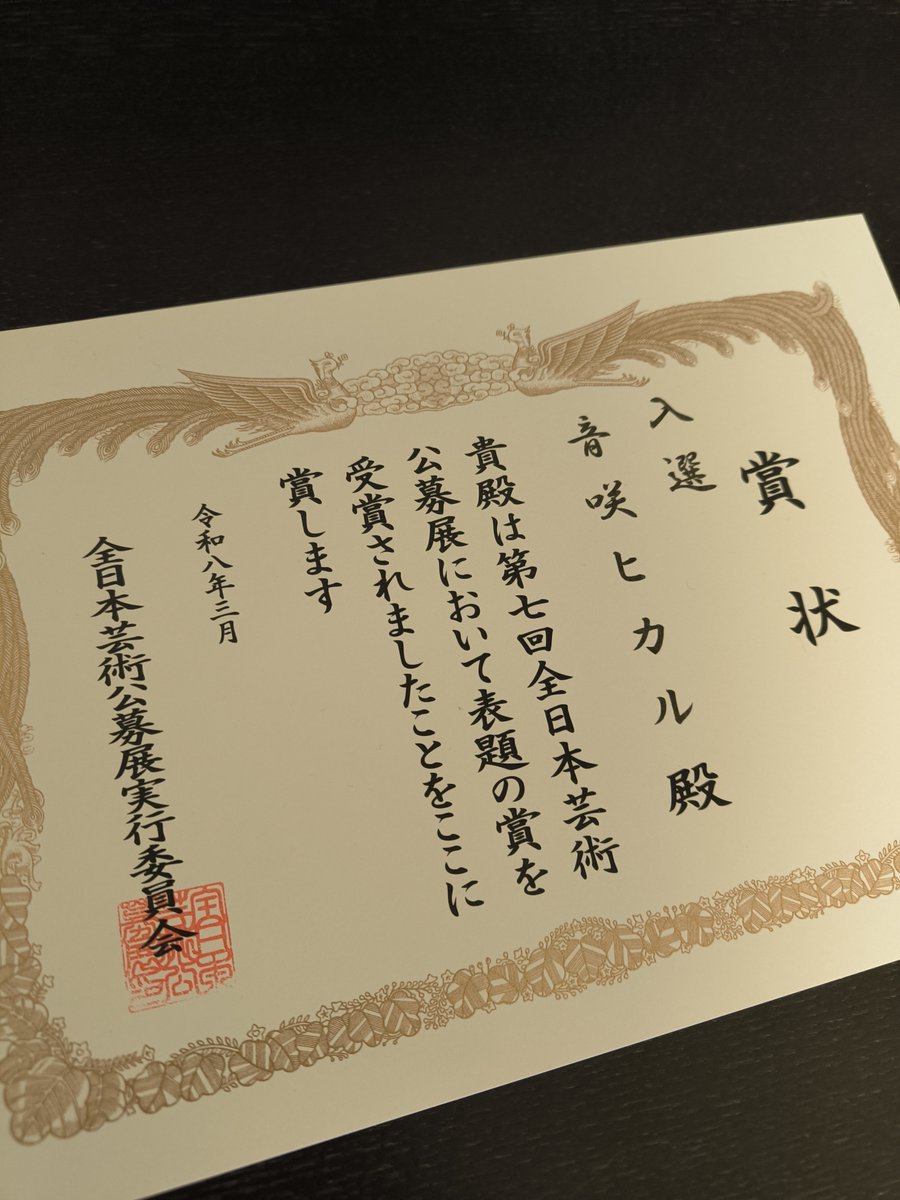 賞状
入選
音咲ヒカル殿
貴殿は第七回全日本芸術
公募展において表題の賞を
受賞されましたことをここに
賞します
令和八年三月
全日本芸術公募展実行委員会